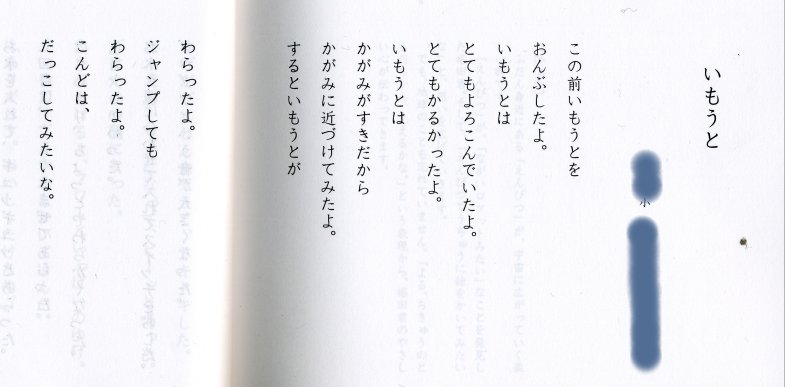 いもうと
小
この前いもうとを
おんぶしたよ。
いもうとは
とてもよろこんでいたよ。
とてもかるかったよ。
いもうとは
かがみがすきだから
かがみに近づけてみたよ。
するといもうとが
わらったよ。
ジャンプしても
わらったよ。
こんどは、
だっこしてみたいな。